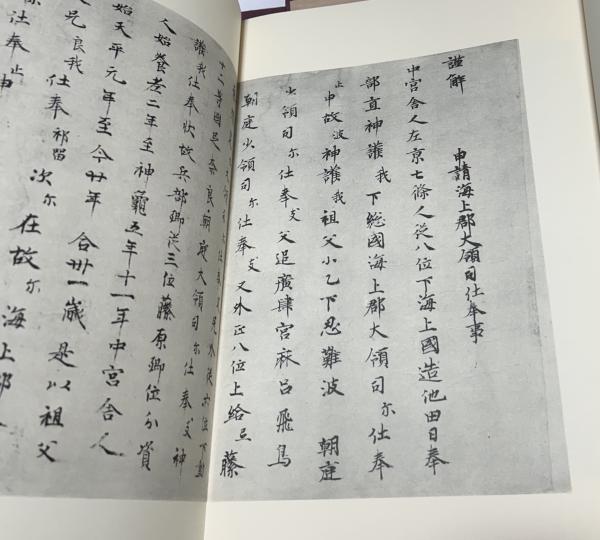 謹解　申請海上郡大領司仕奉事
中宮舎人左京七條人従八位下海上國造他田日奉
部直神護我下総國海上郡大領司尓仕奉
止申故波神護我祖父小乙下忍難波　朝庭
少領司尓仕奉支父追廣肆宮麻呂飛鳥
朝庭少領司尓仕奉支又外正八位上給弖藤
大領司尓仕奉支兄外従六位下勲
十二等國足奈良朝庭大領司尓仕奉支神
護我仕奉状故兵部卿従三位藤原卿位分資
人始養老二年至神龜五年十一年中宮舎人
始天平元年至今廿年　合卅一歳　是以祖父
兄良我仕奉祁留次尓在故尓海上郡
仕奉止申